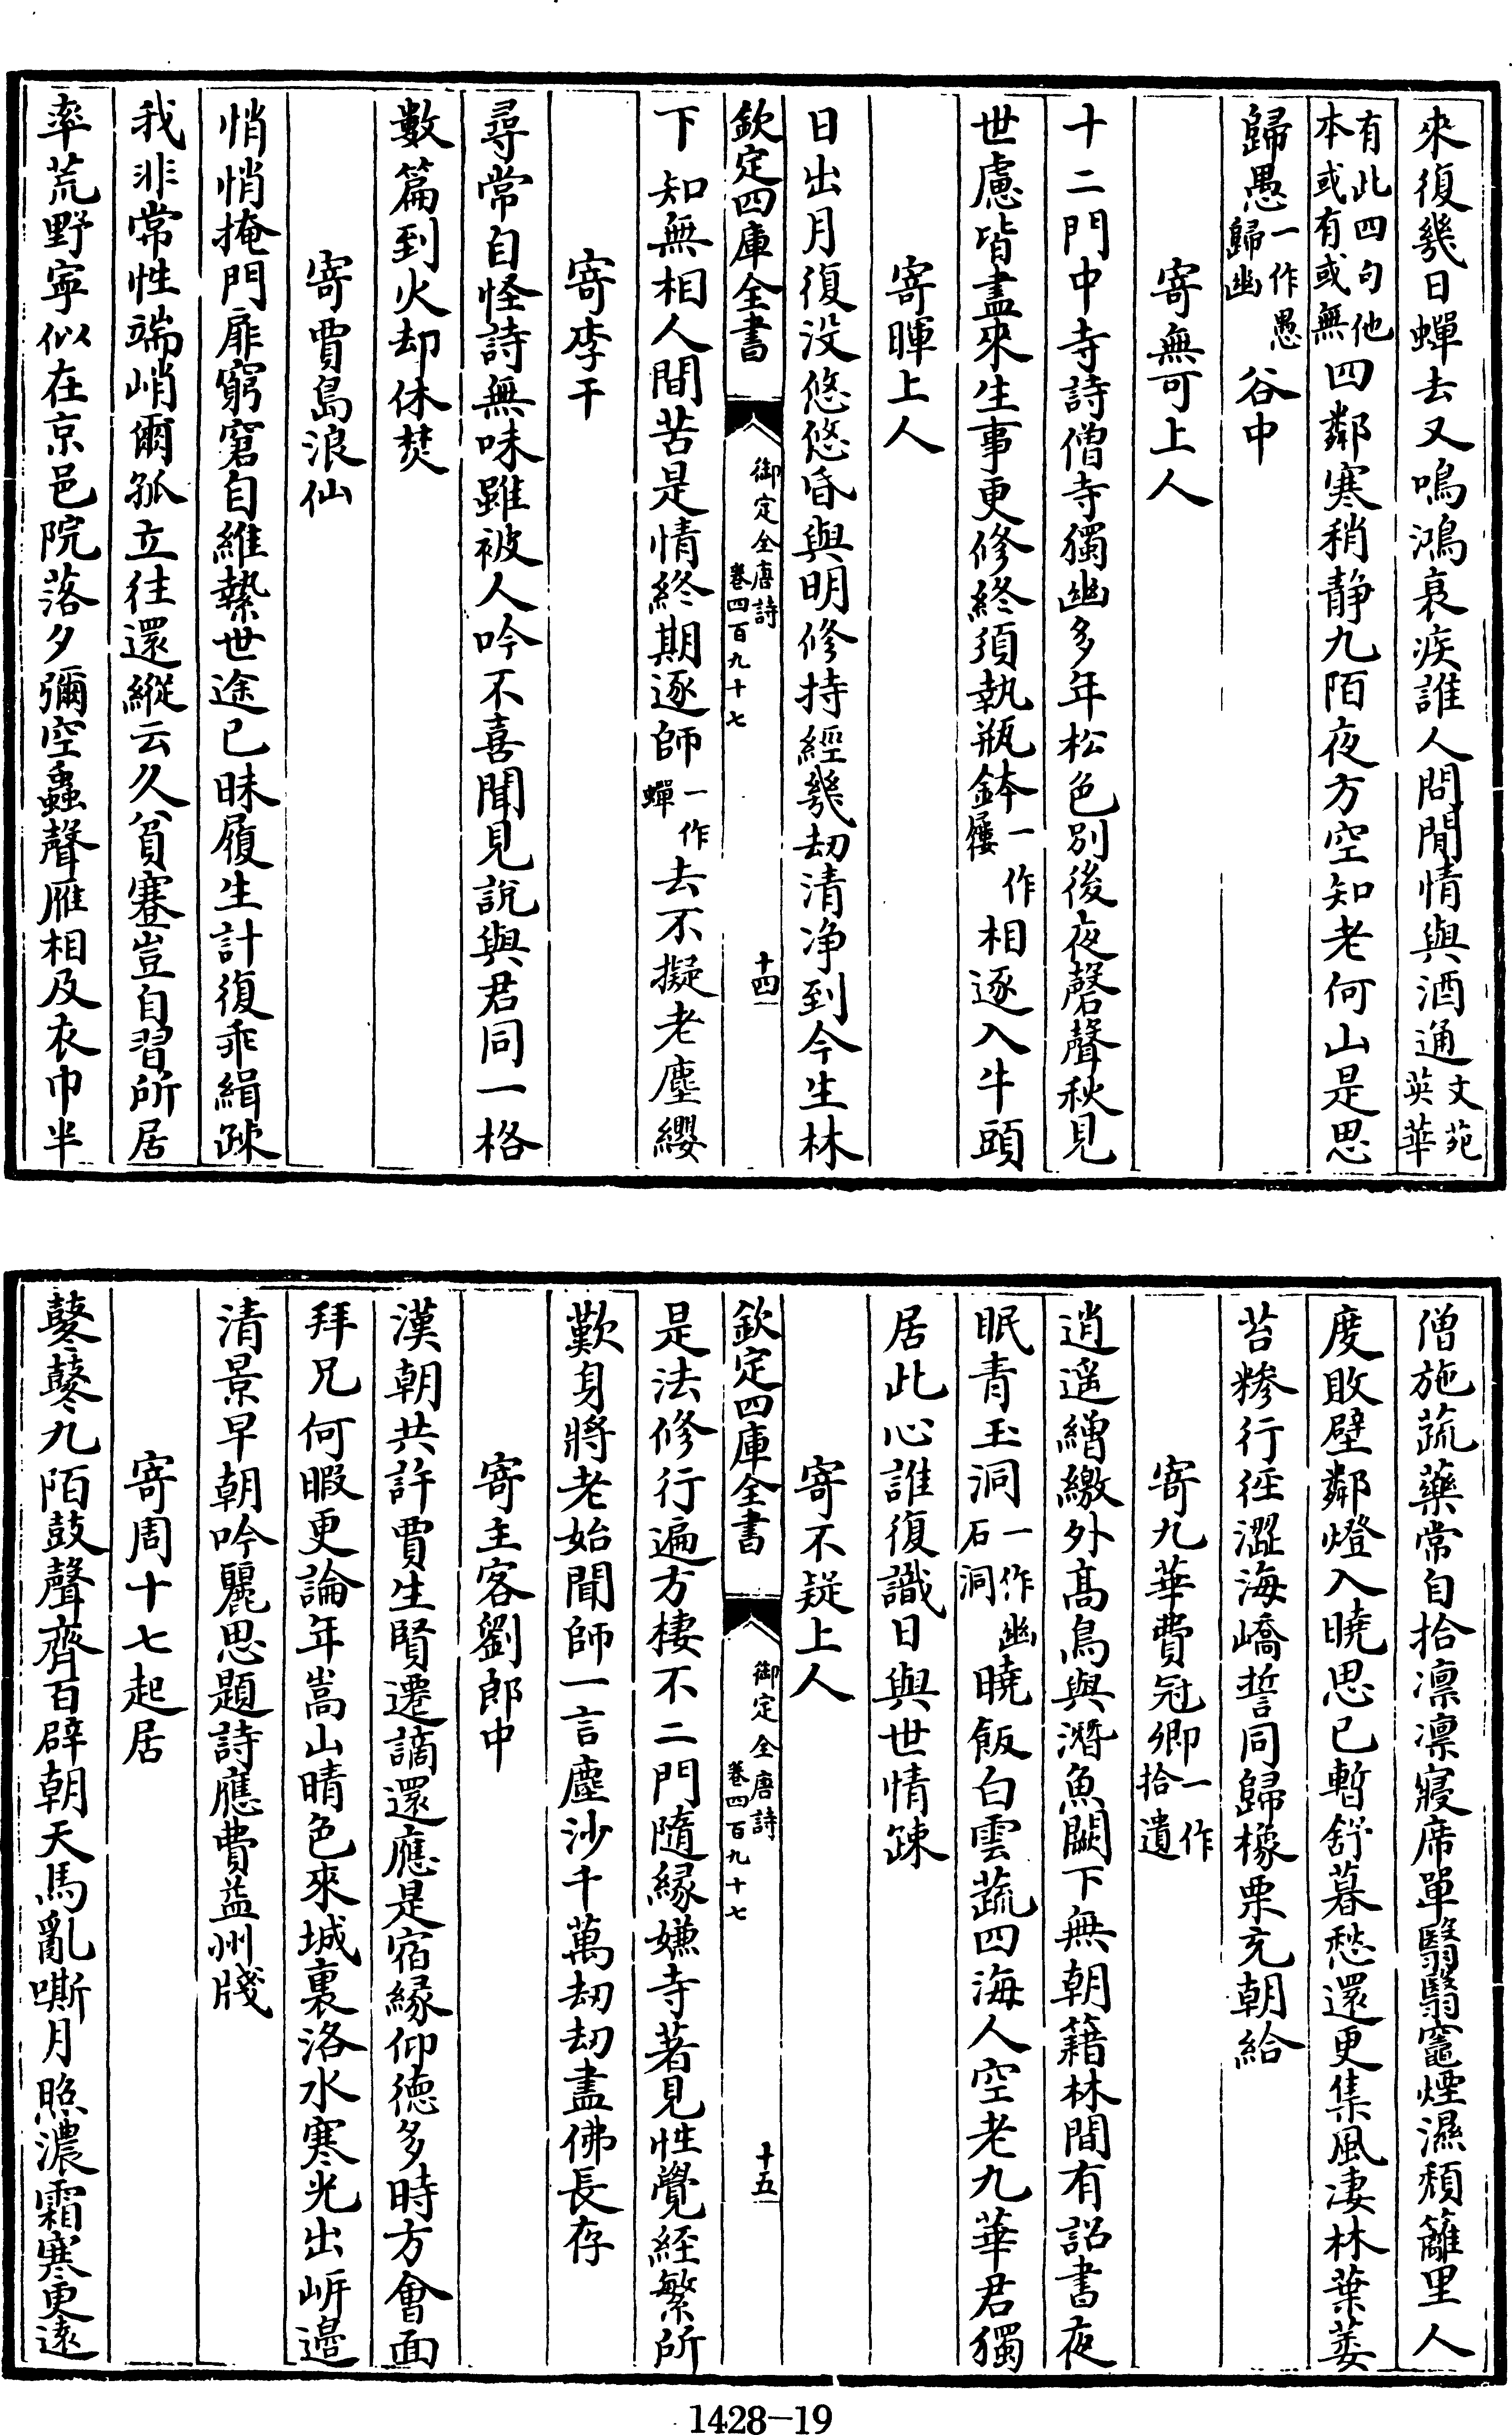 來復幾日蟬去又鳴鴻衰疾誰人問閒情與酒通文苑英華
有此四句他本或有或無四鄰寒稍静九陌夜方空知老何山是思
歸愚一作愚歸幽谷中
寄無可上人
十二門中寺詩僧寺獨幽多年松色別後夜磬聲秋見
世慮皆盡來生事更修終須執瓶鉢一作屨相逐入牛頭
寄暉上人
日出月復没悠悠昏與明修持經幾刼清净到今生林
欽定四庫全書 御定全唐詩卷四百九十七 十四
下知無相人間苦是情終期逐師一作蟬去不擬老塵纓
寄李干
尋常自怪詩無味雖被人吟不喜聞見說與君同一格
數篇到火却休焚
寄賈島浪仙
悄悄掩門扉窮窘自維縶世途已昧履生計復乖緝疎
我非常性端峭爾孤立往還縱云久貧蹇豈自習所居
率荒野寧似在京邑院落夕彌空蟲聲雁相及衣巾半
僧施蔬藥常自拾凛凛寢席單翳翳竈煙濕頹籬里人
度敗壁鄰燈入曉思已暫舒暮愁還更集風凄林葉萎
苔糝行徑澀海嶠誓同歸橡栗充朝給
寄九華費冠卿一作拾遺
逍遥繒繳外高鳥與潛魚闕下無朝籍林間有詔書夜
眠青玉洞一作幽石洞曉飯白雲蔬四海人空老九華君獨
居此心誰復識日與世情疎
寄不疑上人
欽定四庫全書 御定全唐詩卷四百九十七 十五
是法修行遍方棲不二門隨緣嫌寺著見性覺經繁所
歎身將老始聞師一言塵沙千萬刼刼盡佛長存
寄主客劉郎中
漢朝共許賈生賢遷謫還應是宿緣仰德多時方會面
拜兄何暇更論年嵩山晴色來城裏洛水寒光出岍邉
清景早朝吟麗思題詩應費益州牋
寄周十七起居
鼕鼕九陌鼓聲齊百辟朝天馬亂嘶月照濃霜寒更遠
1428—19